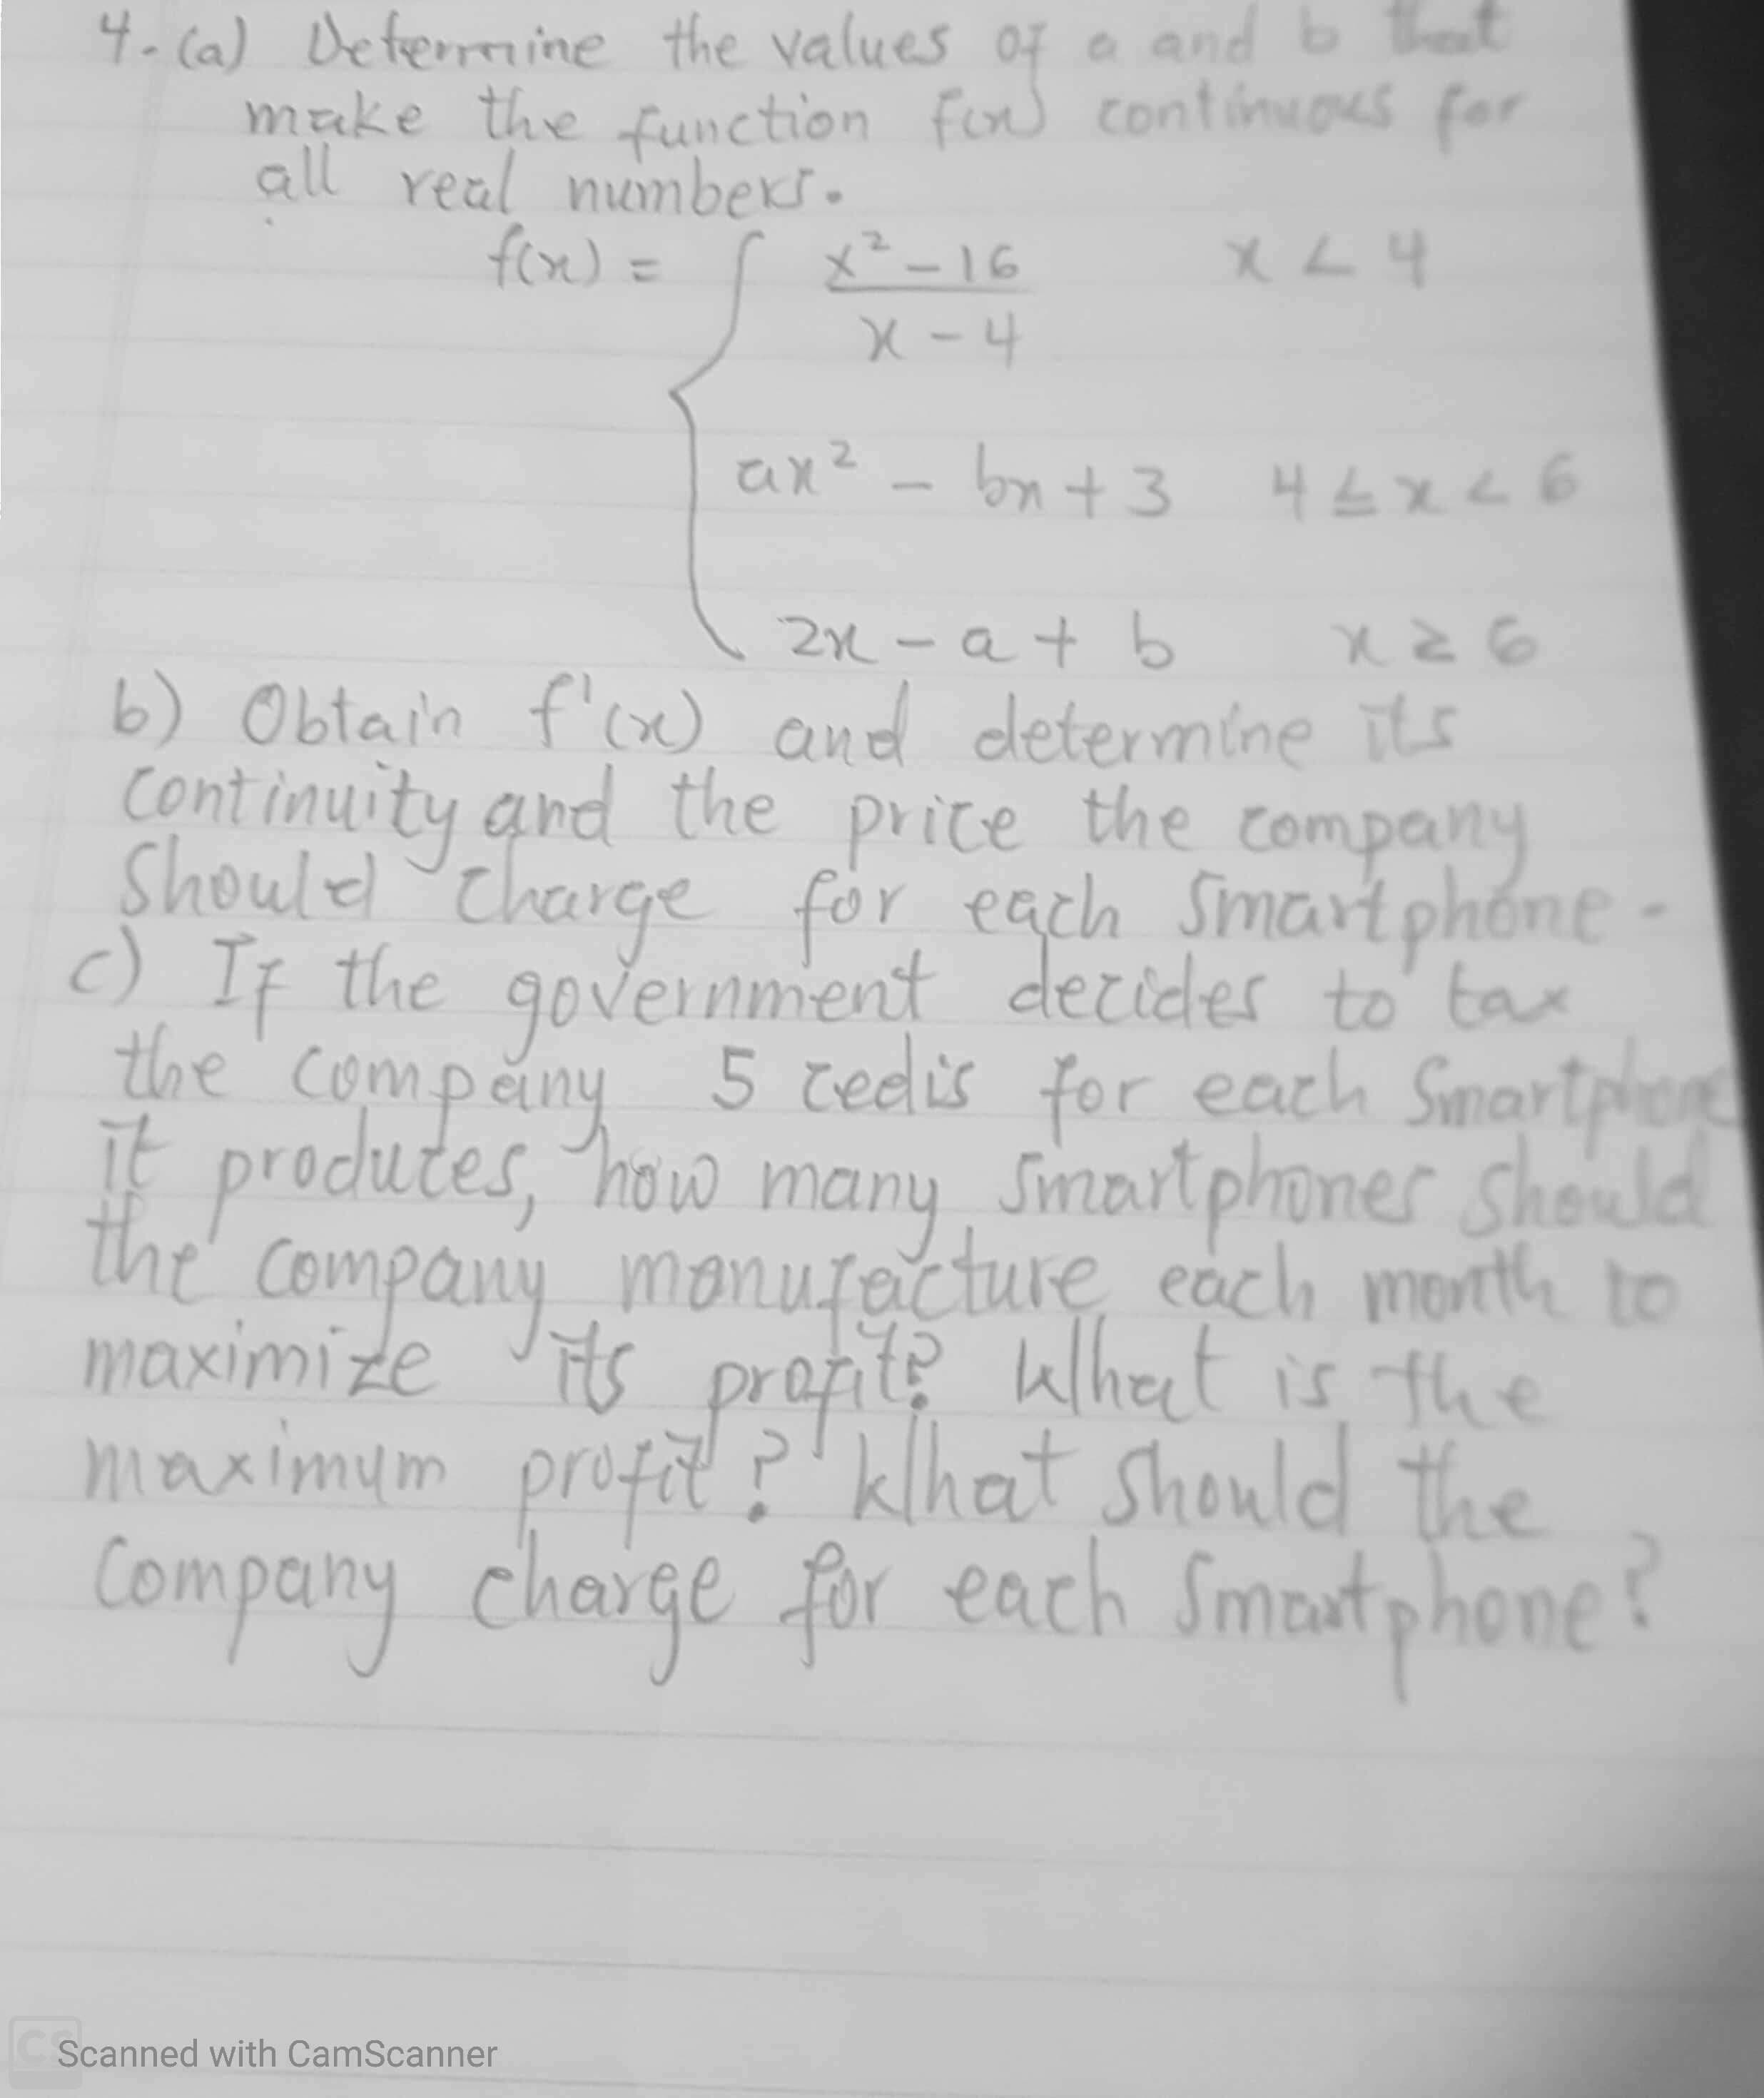 4. (a) Determine the values of a and b that
make the function f(x) continuous for
all real numbers.
f(x) = { x² - 16 x < 4
x - 4
ax² - bx + 3 4 ≤ x < 6
2x - a + b x ≥ 6
b) Obtain f'(x) and determine its
continuity and the price the company
should charge for each smartphone.
c) If the government decides to tax
the company 5 cedis for each smartphone
it produces, how many smartphones should
the company manufacture each month to
maximize its profit? What is the
maximum profit? What should the
company charge for each smartphone?
CS Scanned with CamScanner